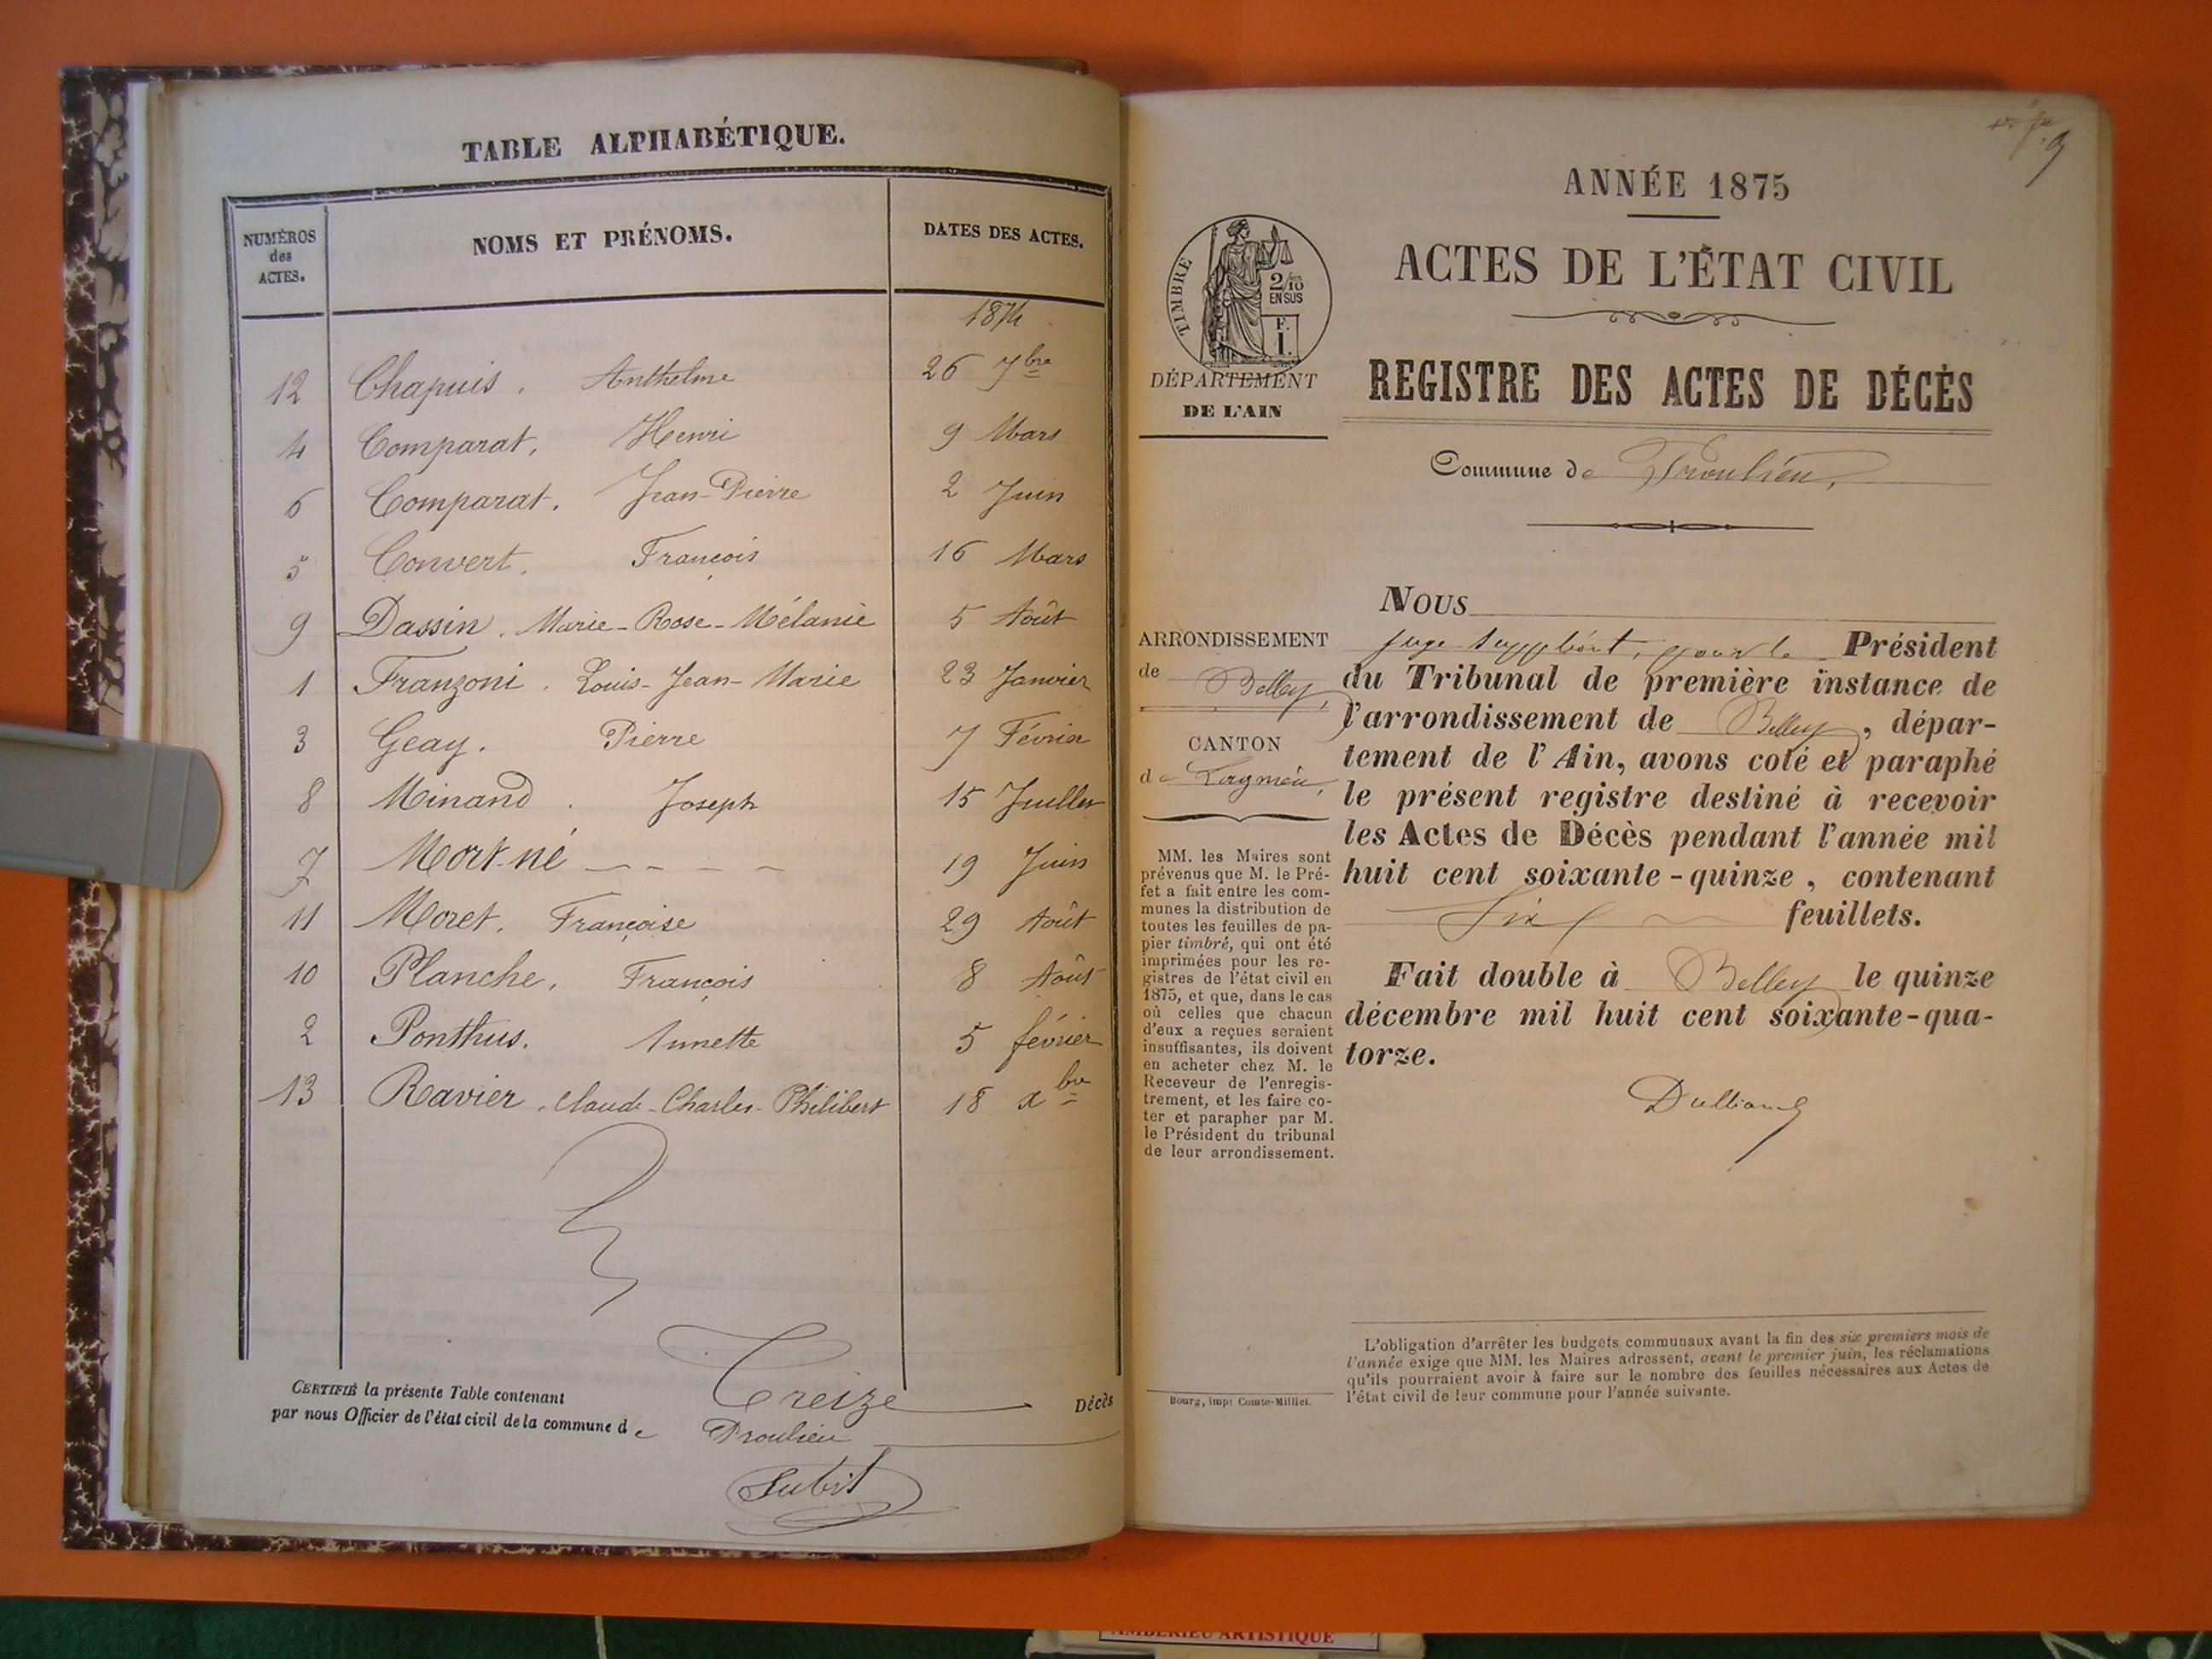 TABLE ALPHABÉTIQUE.
NUMÉROS des ACTES. NOMS ET PRÉNOMS. DATES DES ACTES.
1874
12 Chapuis. Anthelme 26 7bre
4 Comparat, Henri 9 Mars
6 Comparat. Jean-Pierre 2 Juin
5 Convert. François 16 Mars
9 Dassin. Marie-Rose-Mélanie 5 Août
1 Franzoni. Louis-Jean-Marie 23 Janvier
3 Geay. Pierre 7 Février
8 Minand. Joseph 15 Juillet
7 Mort-né - - - - 19 Juin
11 Moret. Françoise 29 Août
10 Planche, François 8 Août
2 Ponthus. Annette 5 février
13 Ravier, Claude-Charles-Philibert 18 xbre
CERTIFIÉ la présente Table contenant Treize Décès
par nous Officier de l'état civil de la commune de Proulieu
Subit
ANNÉE 1875
ACTES DE L'ÉTAT CIVIL
REGISTRE DES ACTES DE DÉCÈS
Commune de Proulieu,
TIMBRE
2/10
EN SUS
F.
1.
DÉPARTEMENT
DE L'AIN
ARRONDISSEMENT
de Belley,
CANTON
de Lagnieu,
MM. les Maires sont
prévenus que M. le Pré-
fet a fait entre les com-
munes la distribution de
toutes les feuilles de pa-
pier timbré, qui ont été
imprimées pour les re-
gistres de l'état civil en
1875, et que, dans le cas
où celles que chacun
d'eux a reçues seraient
insuffisantes, ils doivent
en acheter chez M. le
Receveur de l'enregis-
trement, et les faire co-
ter et parapher par M.
le Président du tribunal
de leur arrondissement.
Bourg, imp. Comte-Milliet.
NOUS
juge suppléant, pour le Président
du Tribunal de première instance de
l'arrondissement de Belley, dépar-
tement de l'Ain, avons coté et paraphé
le présent registre destiné à recevoir
les Actes de Décès pendant l'année mil
huit cent soixante-quinze, contenant
Six feuillets.
Fait double à Belley le quinze
décembre mil huit cent soixante-qua-
torze.
L'obligation d'arrêter les budgets communaux avant la fin des six premiers mois de
l'année exige que MM. les Maires adressent, avant le premier juin, les réclamations
qu'ils pourraient avoir à faire sur le nombre des feuilles nécessaires aux Actes de
l'état civil de leur commune pour l'année suivante.
AMBERIEU ARTISTIQUE